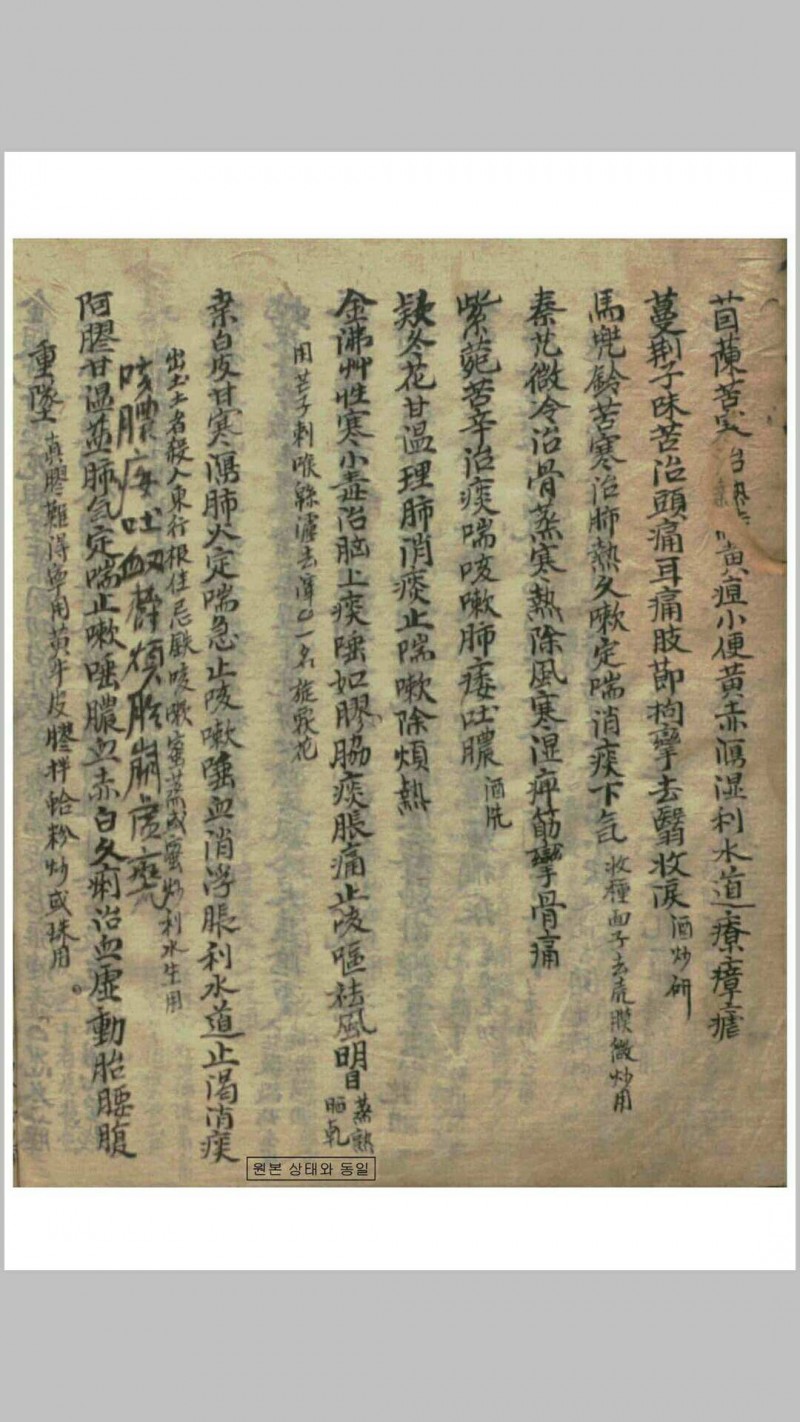 茵蔯苦寒 黃疸小便黃赤瀉湿利水道療瘴瘧
蔓荆子味苦治頭痛耳痛肢節拘攣去翳收淚 酒炒研
馬兠鈴苦寒治肺熱久嗽定喘消痰下气 收種面子去売膜微炒用
秦艽微冷治骨蒸寒熱除風寒湿痺筋攣骨痛
紫菀苦辛治痰喘咳嗽肺痿吐膿 酒洗
欵冬花甘温理肺消痰止喘嗽除煩熱
金沸艸性寒小毒治脑上痰唾如膠脇痰脹痛止咳嘔祛風明目 蒸熟晒乹
用 子刺喉 濾去渾 一名旋覆花
桒白皮甘寒瀉肺火定喘急止咳嗽唾血消浮脹利水道止渴消痰
出土者殺人東行根佳忌鉄咳嗽蜜蒸或蜜炒利水生用
咳膿 吐 胎崩
阿膠甘温益肺气定喘止嗽唾膿血赤白久痢治血虛動胎腰腹
重墜 真膠難得寧用黃牛皮膠拌蛤粉炒或珠用
원본 상태와 동일